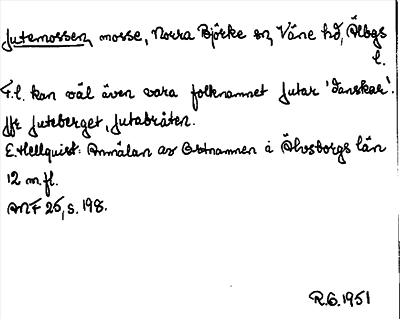 Jutemossen, mosse, Norra Björke sn, Väne hd, Älvbgs
l.
F.l. kan väl även vara folknamnet jutar 'danskar'.
Jfr Juteberget, Jutabråten.
E. Hellquist: Anmälan av Ortnamnen i Älvsborgs län
12 m.fl.
ANF 25, s. 198.
R.G. 1951